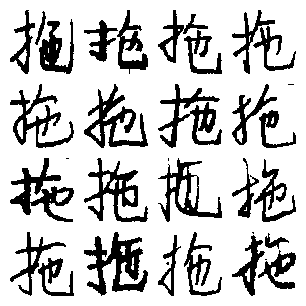 拖拖拖拖
拖拖拖拖
拖拖拖拖
拖拖拖拖